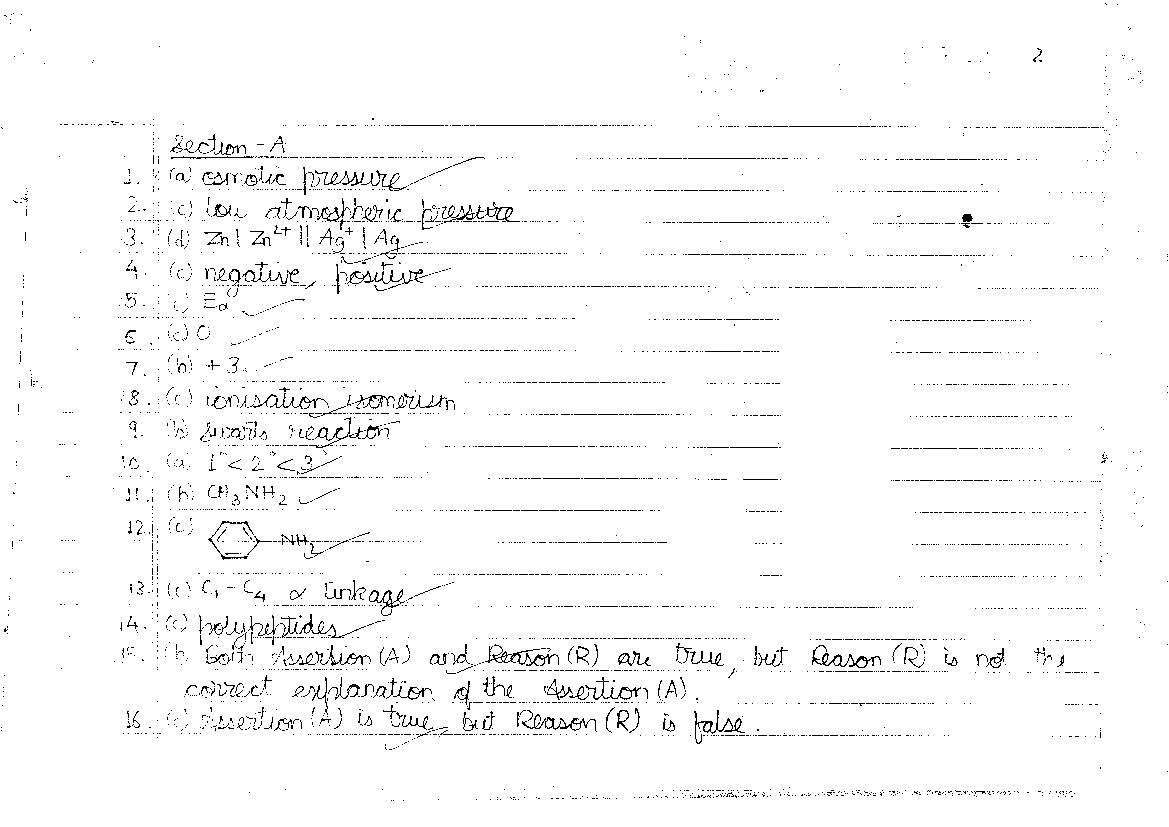 2
Section - A
1. (a) osmotic pressure
2. (c) low atmospheric pressure
3. (d) Zn | Zn²⁺ || Ag⁺ | Ag
4. (c) negative, positive
5. Ea
6. (c) 0
7. (b) + 3
8. (c) ionisation isomerism
9. (b) Swarts reaction
10. (a) 1° < 2° < 3°
11. (b) CH₃NH₂
12. (c) NH₂
13. (c) C₁ - C₄ α linkage
14. (c) polypeptides
15. (b) Both Assertion (A) and Reason (R) are true, but Reason (R) is not the
correct explanation of the Assertion (A).
16. (c) Assertion (A) is true, but Reason (R) is false.